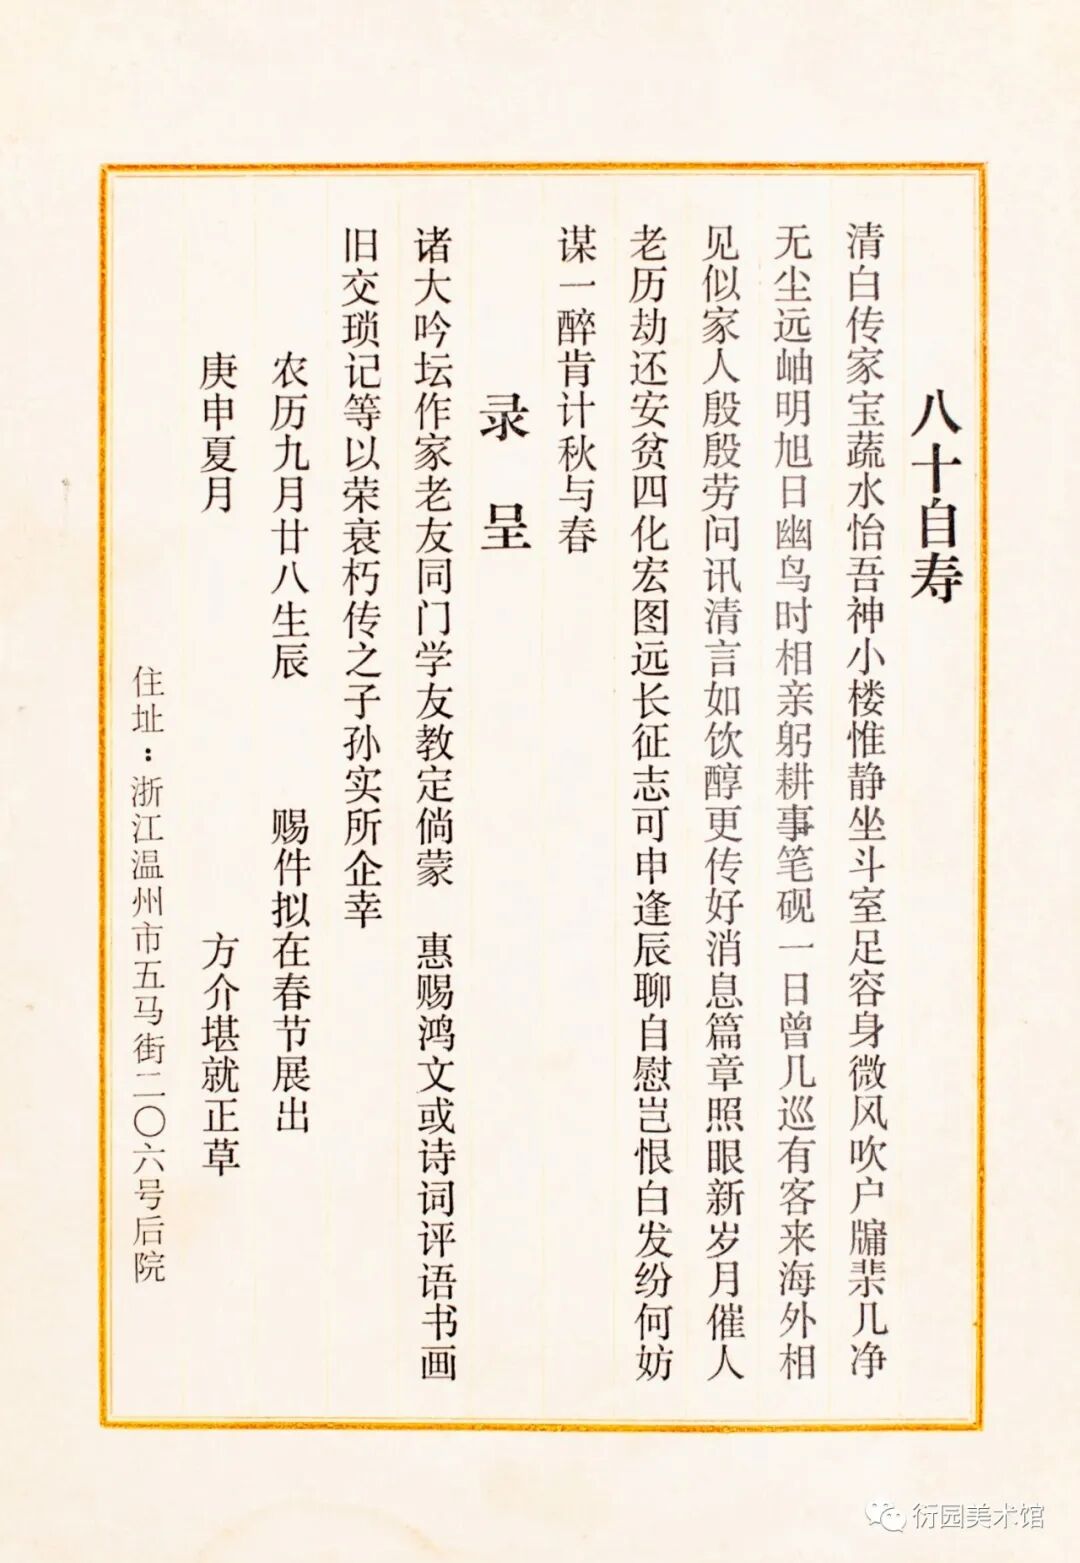 八十自寿
清白传家宝蔬水怡吾神小楼惟静坐斗室足容身微风吹户牖棐几净
无尘远岫明旭日幽鸟时相亲躬耕事笔砚一日曾几巡有客来海外相
见似家人殷殷劳问讯清言如饮醇更传好消息篇章照眼新岁月催人
老历劫还安贫四化宏图远长征志可申逢辰聊自慰岂恨白发纷何妨
谋一醉肯计秋与春
录 呈
诸大吟坛作家老友同门学友教定倘蒙 惠赐鸿文或诗词评语书画
旧交琐记等以荣衰朽传之子孙实所企幸
农历九月廿八生辰 赐件拟在春节展出
庚申夏月 方介堪就正草
住址：浙江温州市五马街二〇六号后院
衍园美术馆